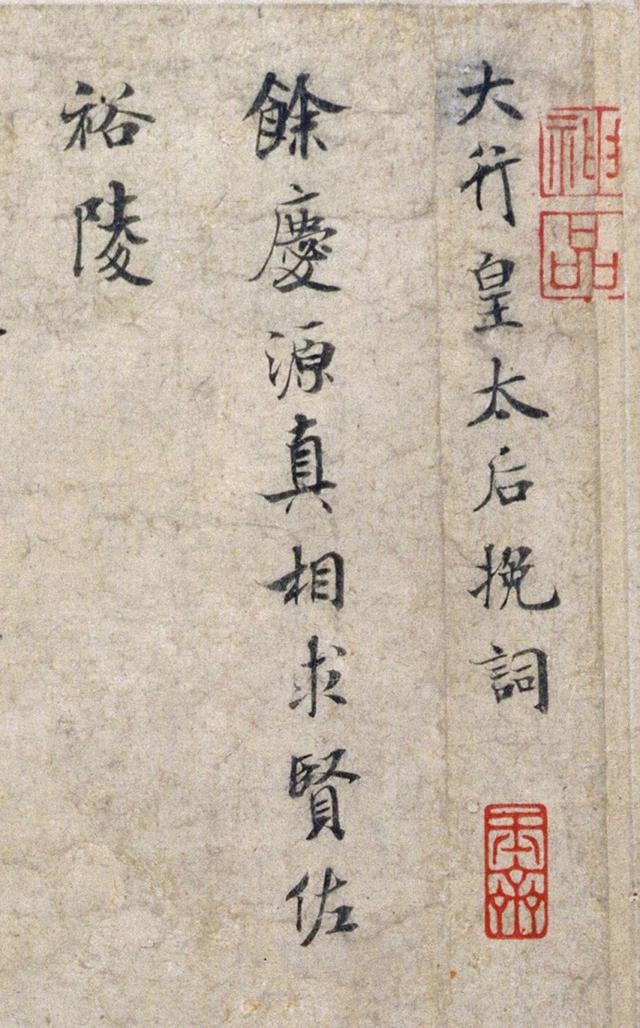 大行皇太后挽詞
餘慶源真相求賢佐
裕陵
神品